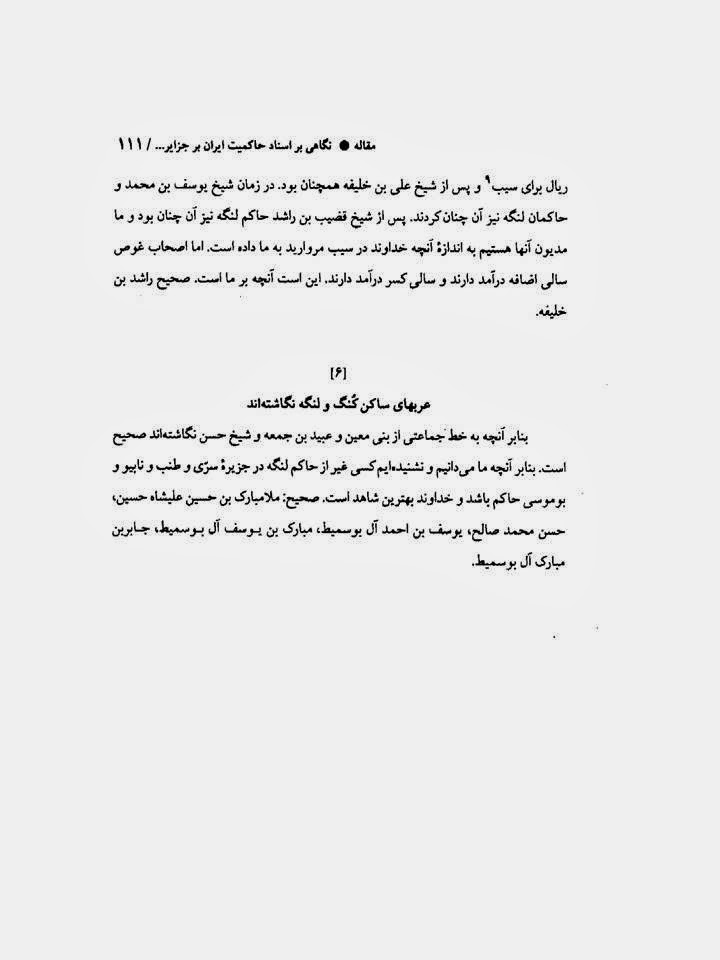 مقاله ● نگاهی بر اسناد حاکمیت ایران بر جزایر... / ۱۱۱
ریال برای سیب۹ و پس از شیخ علی بن خلیفه همچنان بود. در زمان شیخ یوسف بن محمد و
حاکمان لنگه نیز آن چنان کردند. پس از شیخ قضیب بن راشد حاکم لنگه نیز آن چنان بود و ما
مدیون آنها هستیم به اندازهٔ آنچه خداوند در سیب مروارید به ما داده است. اما اصحاب غوص
سالی اضافه درآمد دارند و سالی کسر درآمد دارند. این است آنچه بر ما است. صحیح راشد بن
خلیفه.
[۶]
عربهای ساکن کُنگ و لنگه نگاشته‌اند
بنابر آنچه به خط جماعتی از بنی معین و عبید بن جمعه و شیخ حسن نگاشته‌اند صحیح
است. بنابر آنچه ما می‌دانیم و نشنیده‌ایم کسی غیر از حاکم لنگه در جزیرهٔ سرّی و طنب و نابیو و
بوموسی حاکم باشد و خداوند بهترین شاهد است. صحیح: ملامبارک بن حسین علیشاه حسین،
حسن محمد صالح، یوسف بن احمد آل بوسمیط، مبارک بن یـوسف آل بـوسمیط، جـابربن
مبارک آل بوسمیط.